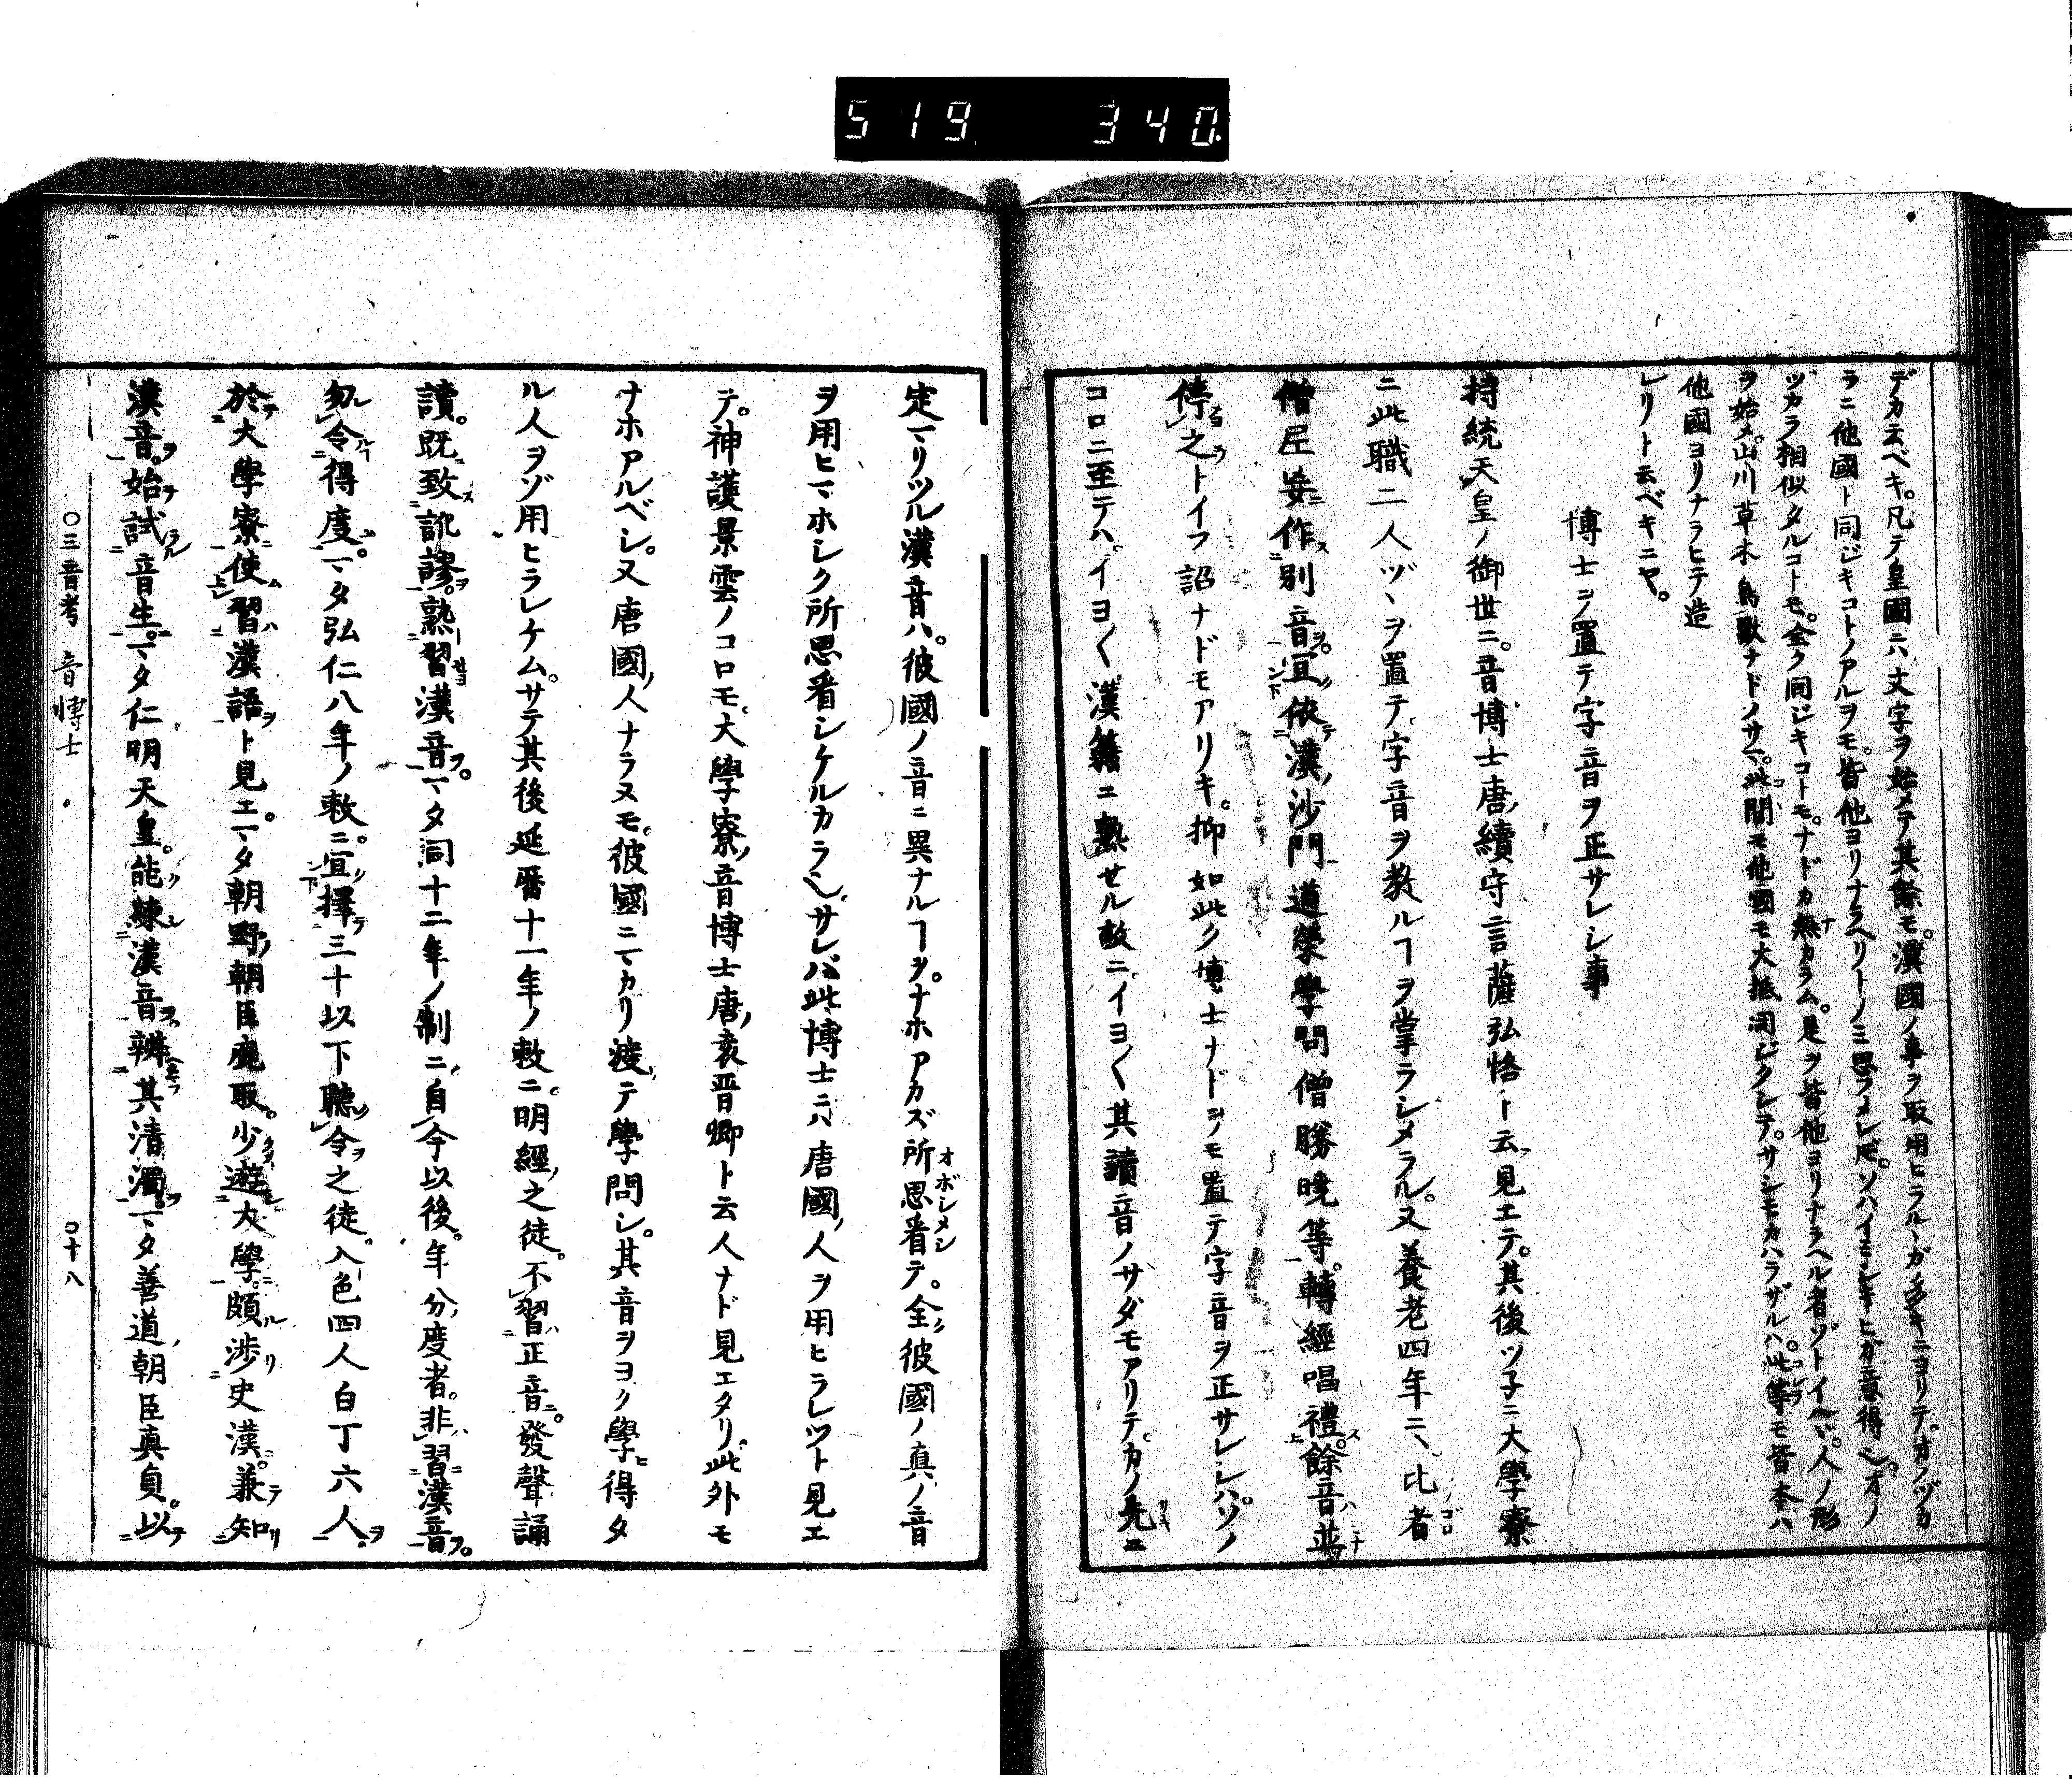 519 340.
デカ云ベキ。凡テ皇國ニハ文字ヲ始メテ其餘モ。漢國ノ事ヲ取用ヒラルヽガ多キニヨリテ。オノヅカ
ラニ他國ト同ジキコトノアルヲモ。皆他ヨリナラヘリトノミ思フメレドモ。ソハイミシキヒガ意得ゾ。オノ
ヅカラ相似タルコトモ。全ク同ジキコトモ。ナドカ無カラム。是ヲ皆他ヨリナラヘル者ゾトイハヾ。人ノ形
ヲ始メ。山川草木鳥獸ナドノサマ。此間モ他國モ大抵同ジクシテ。サシモカハラザルハ。此等モ皆本ハ
他國ヨリナラヒテ造
レリト云ベキニヤ。
博士ヲ置テ字音ヲ正サレシ事
持統天皇ノ御世ニ。音博士唐ノ續守言薩弘恪ト云フ見エテ。其後ツ子ニ大學寮
ニ此職二人ヅヽヲ置テ字音ヲ教ルヿヲ掌ラシメラル。又養老四年ニヽ比者
僧尼妄作別音。宜依漢ノ沙門道榮學問僧勝曉等。轉經唱禮。餘音並
停之トイフ詔ナドモアリキ。抑如此ク博士ナドヲモ置テ字音ヲ正サレシハ。ソノ
コロニ至テハ。イヨ〱漢籍ニ熟セル故ニ。イヨ〱其讀音ノサダモアリテ。カノ先ニ
定マリツル漢音ハ。彼國ノ音ニ異ナルヿヲ。ナホアカズ所思看テ。全ク彼國ノ真ノ音
ヲ用ヒマホシク所思看シケルカラ也。サレバ此博士ニハ唐國ノ人ヲ用ヒラレツト見エ
テ。神護景雲ノコロモ。大學寮ノ音博士唐ノ袁晋卿ト云人ナド見エタリ。此外モ
ナホアルベシ。又唐國ノ人ナラヌモ。彼國ニマカリ渡リテ學問シ。其音ヲヨク學ヒ得タ
ル人ヲゾ用ヒラレケム。サテ其後延曆十一年ノ敕ニ。明經ノ之徒。不習正音。發聲誦
讀。既致訛謬。熟習漢音。マタ同十二年ノ制ニ。自今以後。年分ノ度者。非習漢音。
勿令得度。マタ弘仁八年ノ敕ニ。宜擇三十以下聰令之徒。入色四人白丁六人。
於大學寮使習漢語ト見エ。マタ朝野ノ朝臣鹿取。少遊大學。頗涉史漢。兼知
漢音。始試音生。マタ仁明天皇。能練漢音辨其清濁。マタ善道ノ朝臣真貞。以
〇三音考 音博士 〇十八